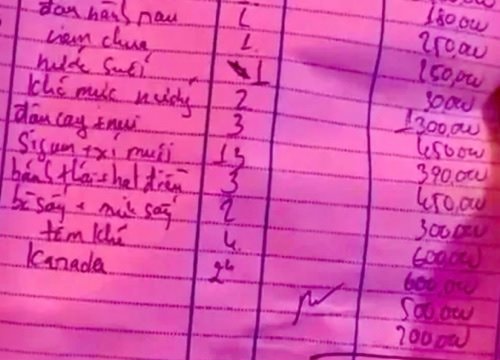 180.000
nem chua 1. 250,000
nước suối 1 250,000
Khô mực nướng 2 300,000
đậu cay + nui 3 1300,000
Sigum + xí muối 13 450,000
bánh + hạt điều 3 390,000
bò sấy + mực sấy 2 450,000
tôm khô 4 300,000
Kanada 24 600,000
600,000
500,000
200,000